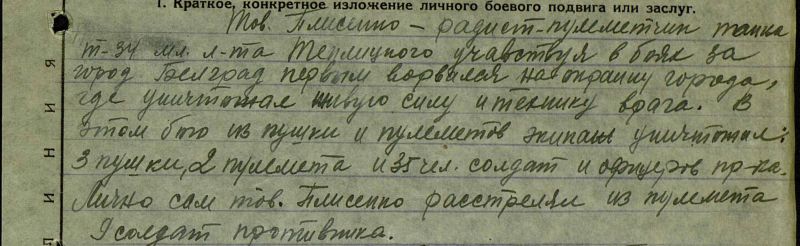 1. Краткое, конкретное изложение личного боевого подвига или заслуг.
Тов. Плисенко – радист-пулеметчик танка
Т-34 мл. л-та Терлицкого учавствуя в боях за
город Белград первым ворвался на окраину города,
где уничтожал живую силу и технику врага. В
этом бою из пушки и пулеметов экипаж уничтожил:
3 пушки, 2 пулемета и 35 чел. солдат и офицеров пр-ка.
Лично сам тов. Плисенко расстрелял из пулемета
9 солдат противника.
Л И Н И Я